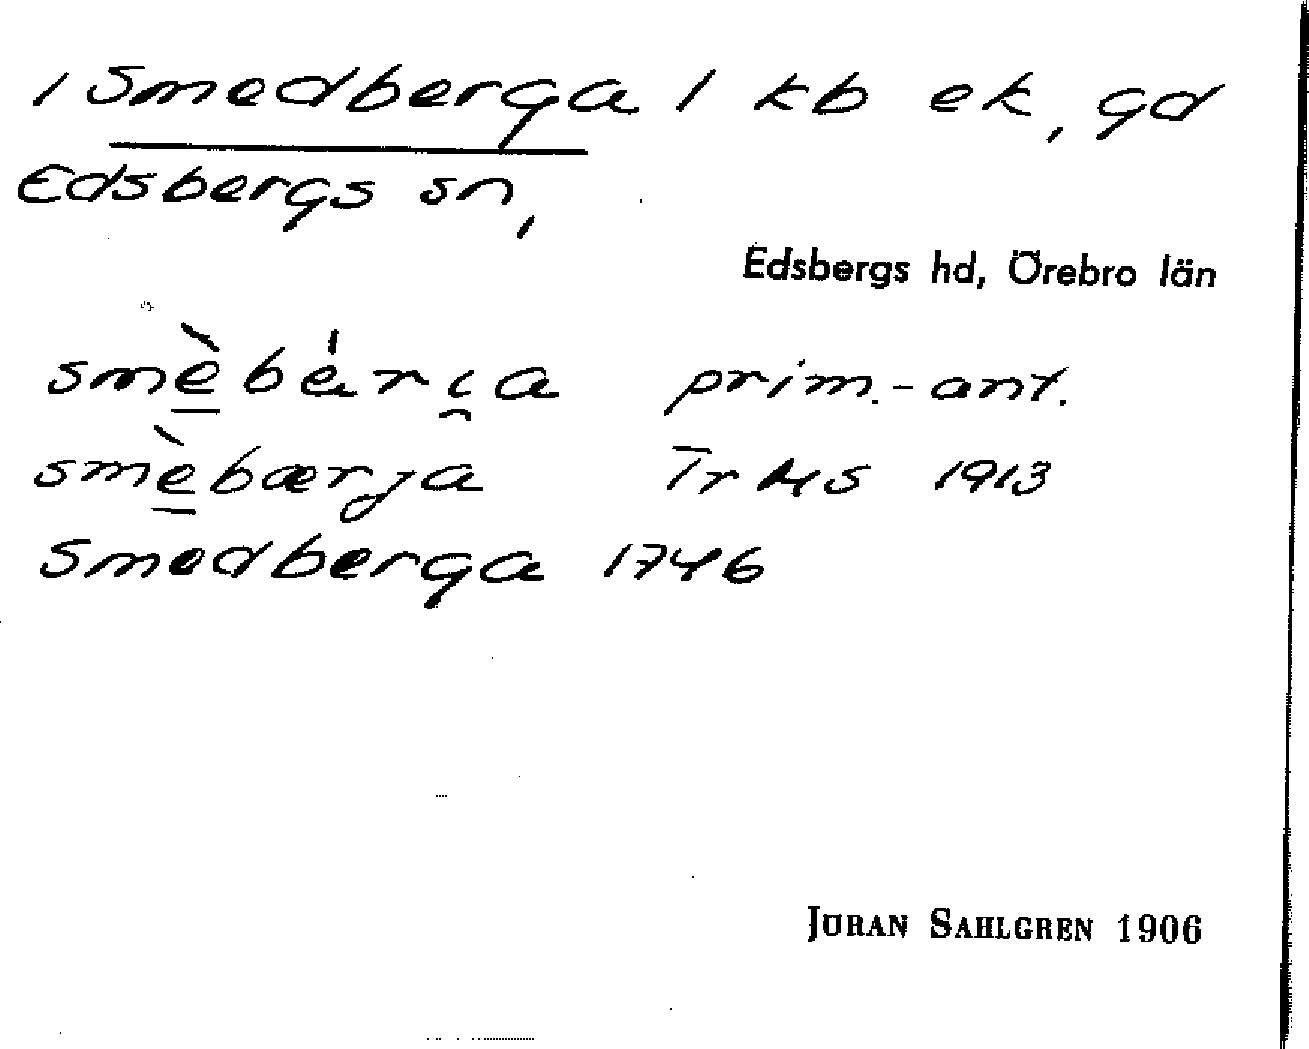 /Smedberga/ kb ek, gd
Edsbergs sn,
Edsbergs hd, Örebro län
smè̱bǽri̯a prim.-ant.
smè̱bærja Tr MS 1913
Smedberga 1746
JÖRAN SAHLGREN 1906